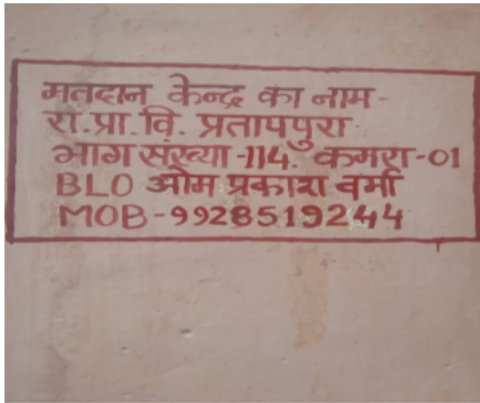 मतदान केन्द्र का नाम-
रा.प्रा.वि. प्रतापपुरा
भाग संख्या-114. कमरा-01
BLO ओम प्रकाश वर्मा
MOB-9928519244